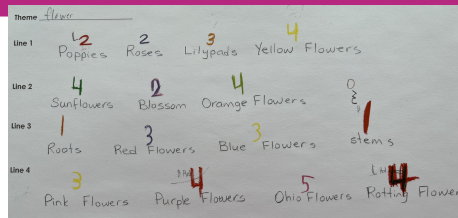 Theme flower
2 2 3 4
Line 1 Poppies Roses Lilypads Yellow Flowers
4 2 4
Line 2 Sunflowers Blossom Orange Flowers
1 3 3 1
Line 3 Roots Red Flowers Blue Flowers stems
3 4 5 4
Line 4 Pink Flowers Purple Flowers Ohio Flowers Rotting Flower